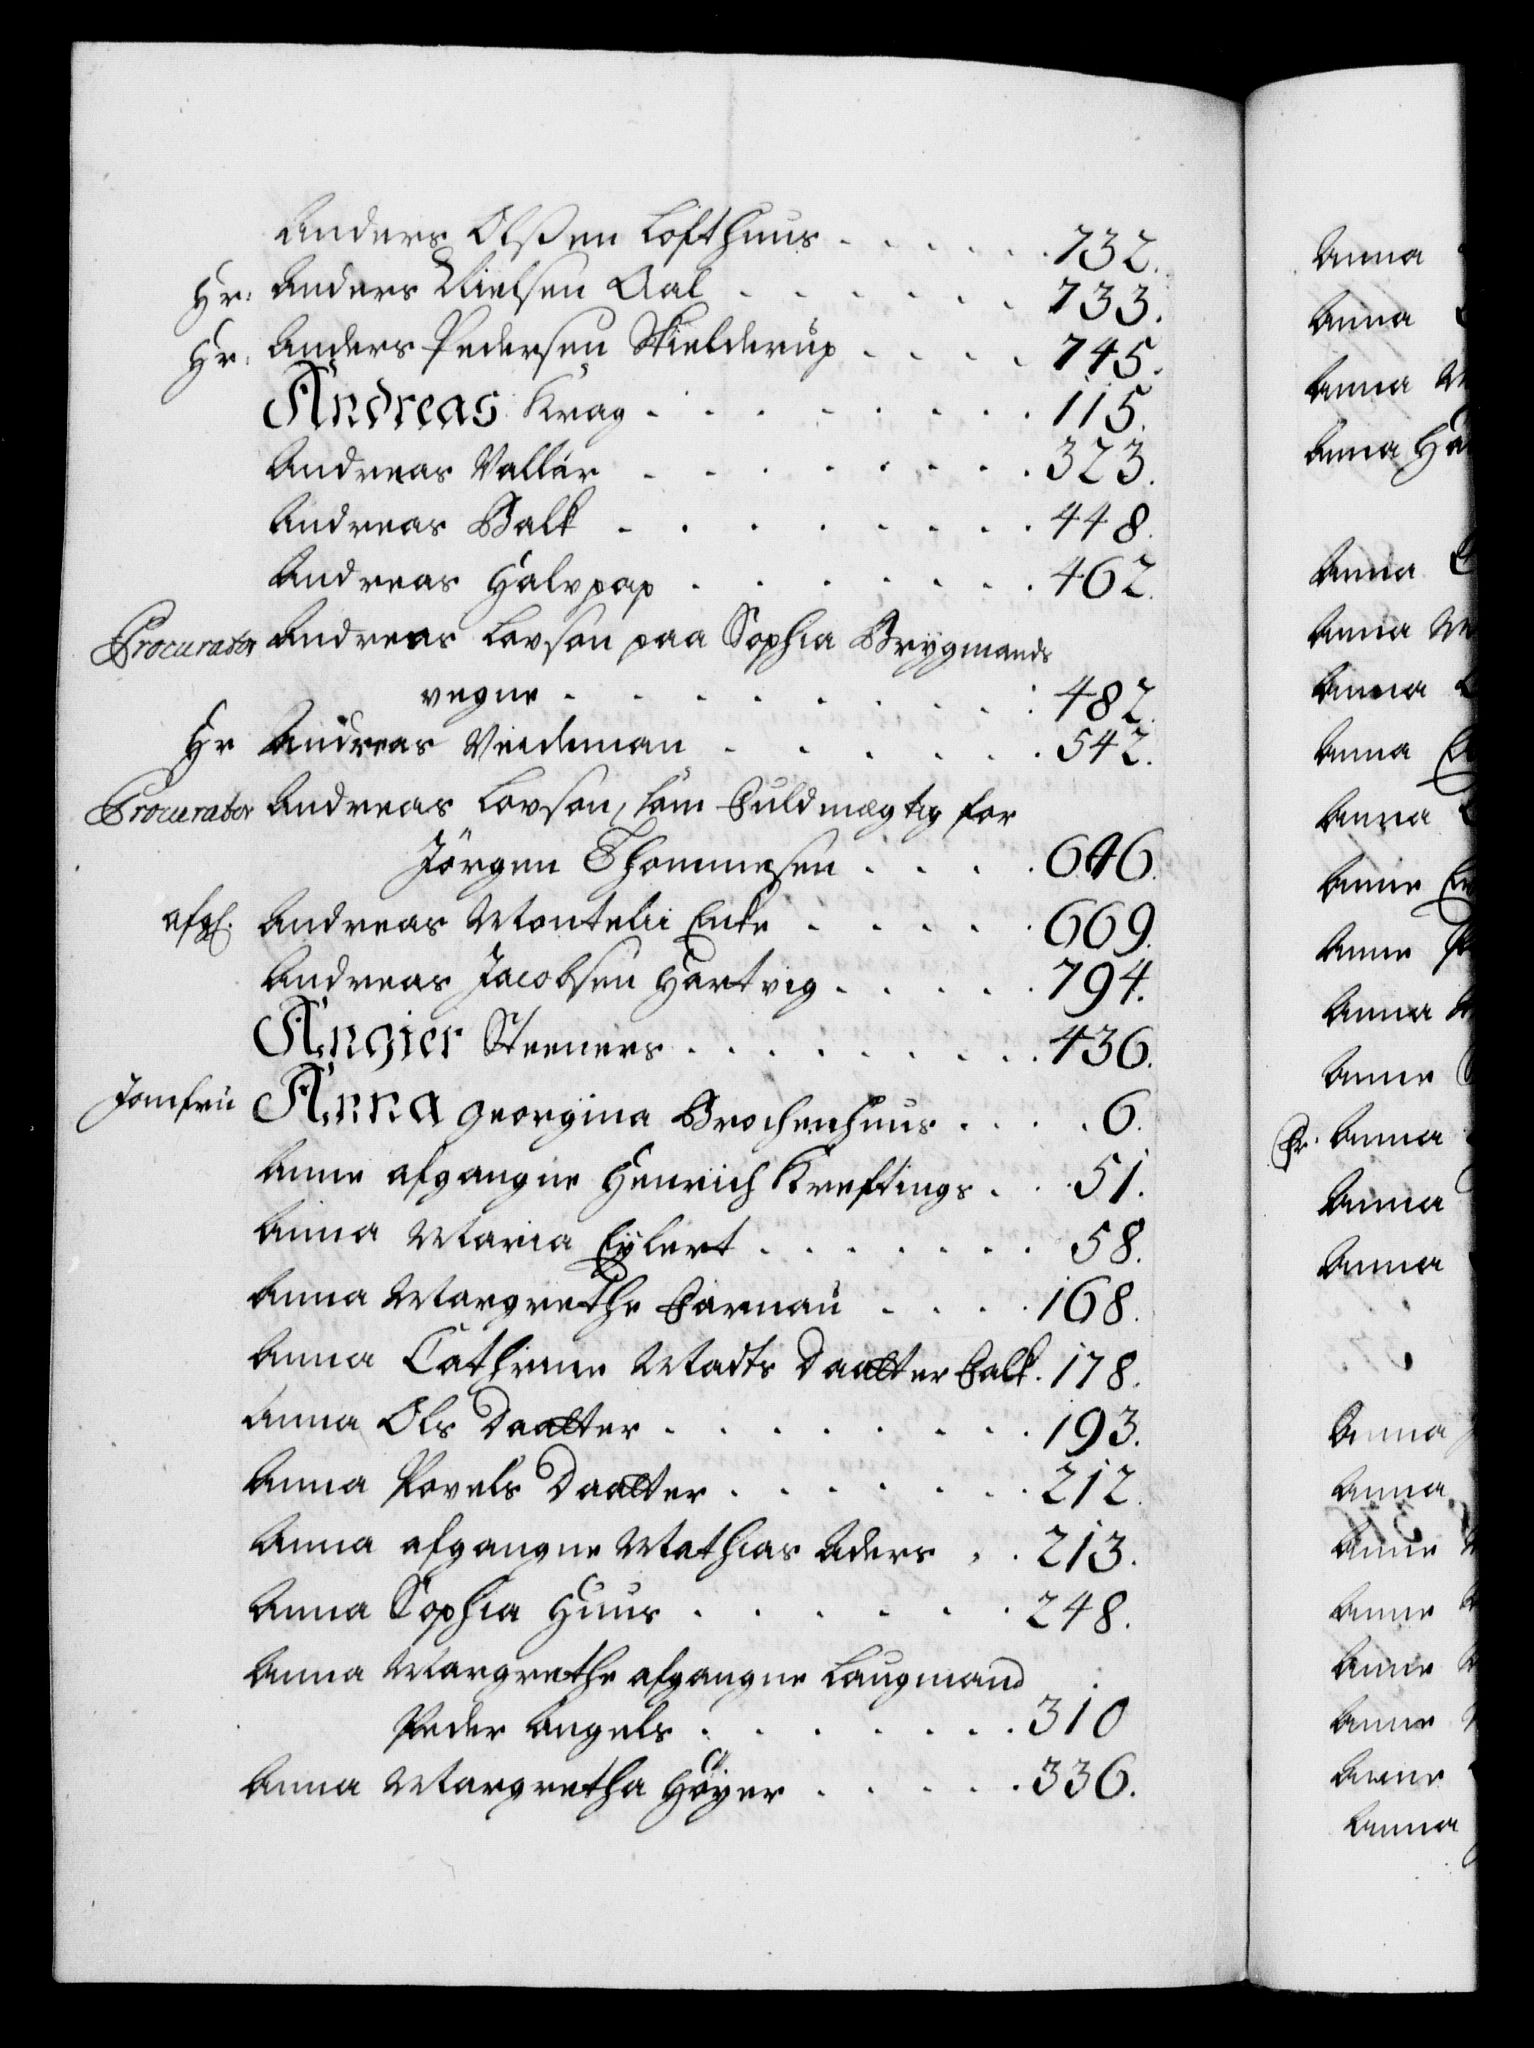 Anders Olsen Lofthuus . . . . . . 732.
Hr: Anders Nielsen Aal . . . . . . 733.
Hr: Anders Pedersen Skielderup . . . . 745.
Andreas Krag . . . . . . . . 115.
Andreas Vallör . . . . . . . . 323.
Andreas Balk . . . . . . . . 448.
Andreas Halvpap . . . . . . . 462.
Procurator Andreas Lovson paa Sophia Brygmands
vegne . . . . . . . . . 482.
Hr Andreas Veideman . . . . . . 542.
Procurator Andreas Lovson, som Fuldmægtig for
Jörgen Thommesen . . . . 646.
afg: Andreas Montelii Enke . . . . . 669.
Andreas Jacobsen Hartvig . . . . . 794.
Angier Steeners . . . . . . . . 436.
Jomfru Anna Georgina Brochenhuus . . . . 6.
Anne afgangne Henrich Kreftings . . . 51.
Anna Maria Eylert . . . . . . . 58.
Anna Margrethe Farnau . . . . 168.
Anna Cathrine Madts Daatter Falk . 178.
Anna Ols Daatter . . . . . . . . 193.
Anna Povels Daatter . . . . . . . 212.
Anna afgangne Mathias Aders . . 213.
Anna Sophia Huus . . . . . . 248.
Anna Margrethe afgangne Laugmand
Peder Angels . . . . . . . 310
Anna Margretha Höyer . . . . . 336.
Anna
Anna
Anna
Anna
Anna
Anna
Anna
Anna
Anna
Anne
Anne
Anna
Anne
Fr. Anna
Anna
Anna
Anna
Anna
Anne
Anne
Anne
Anne
Anne
Anna